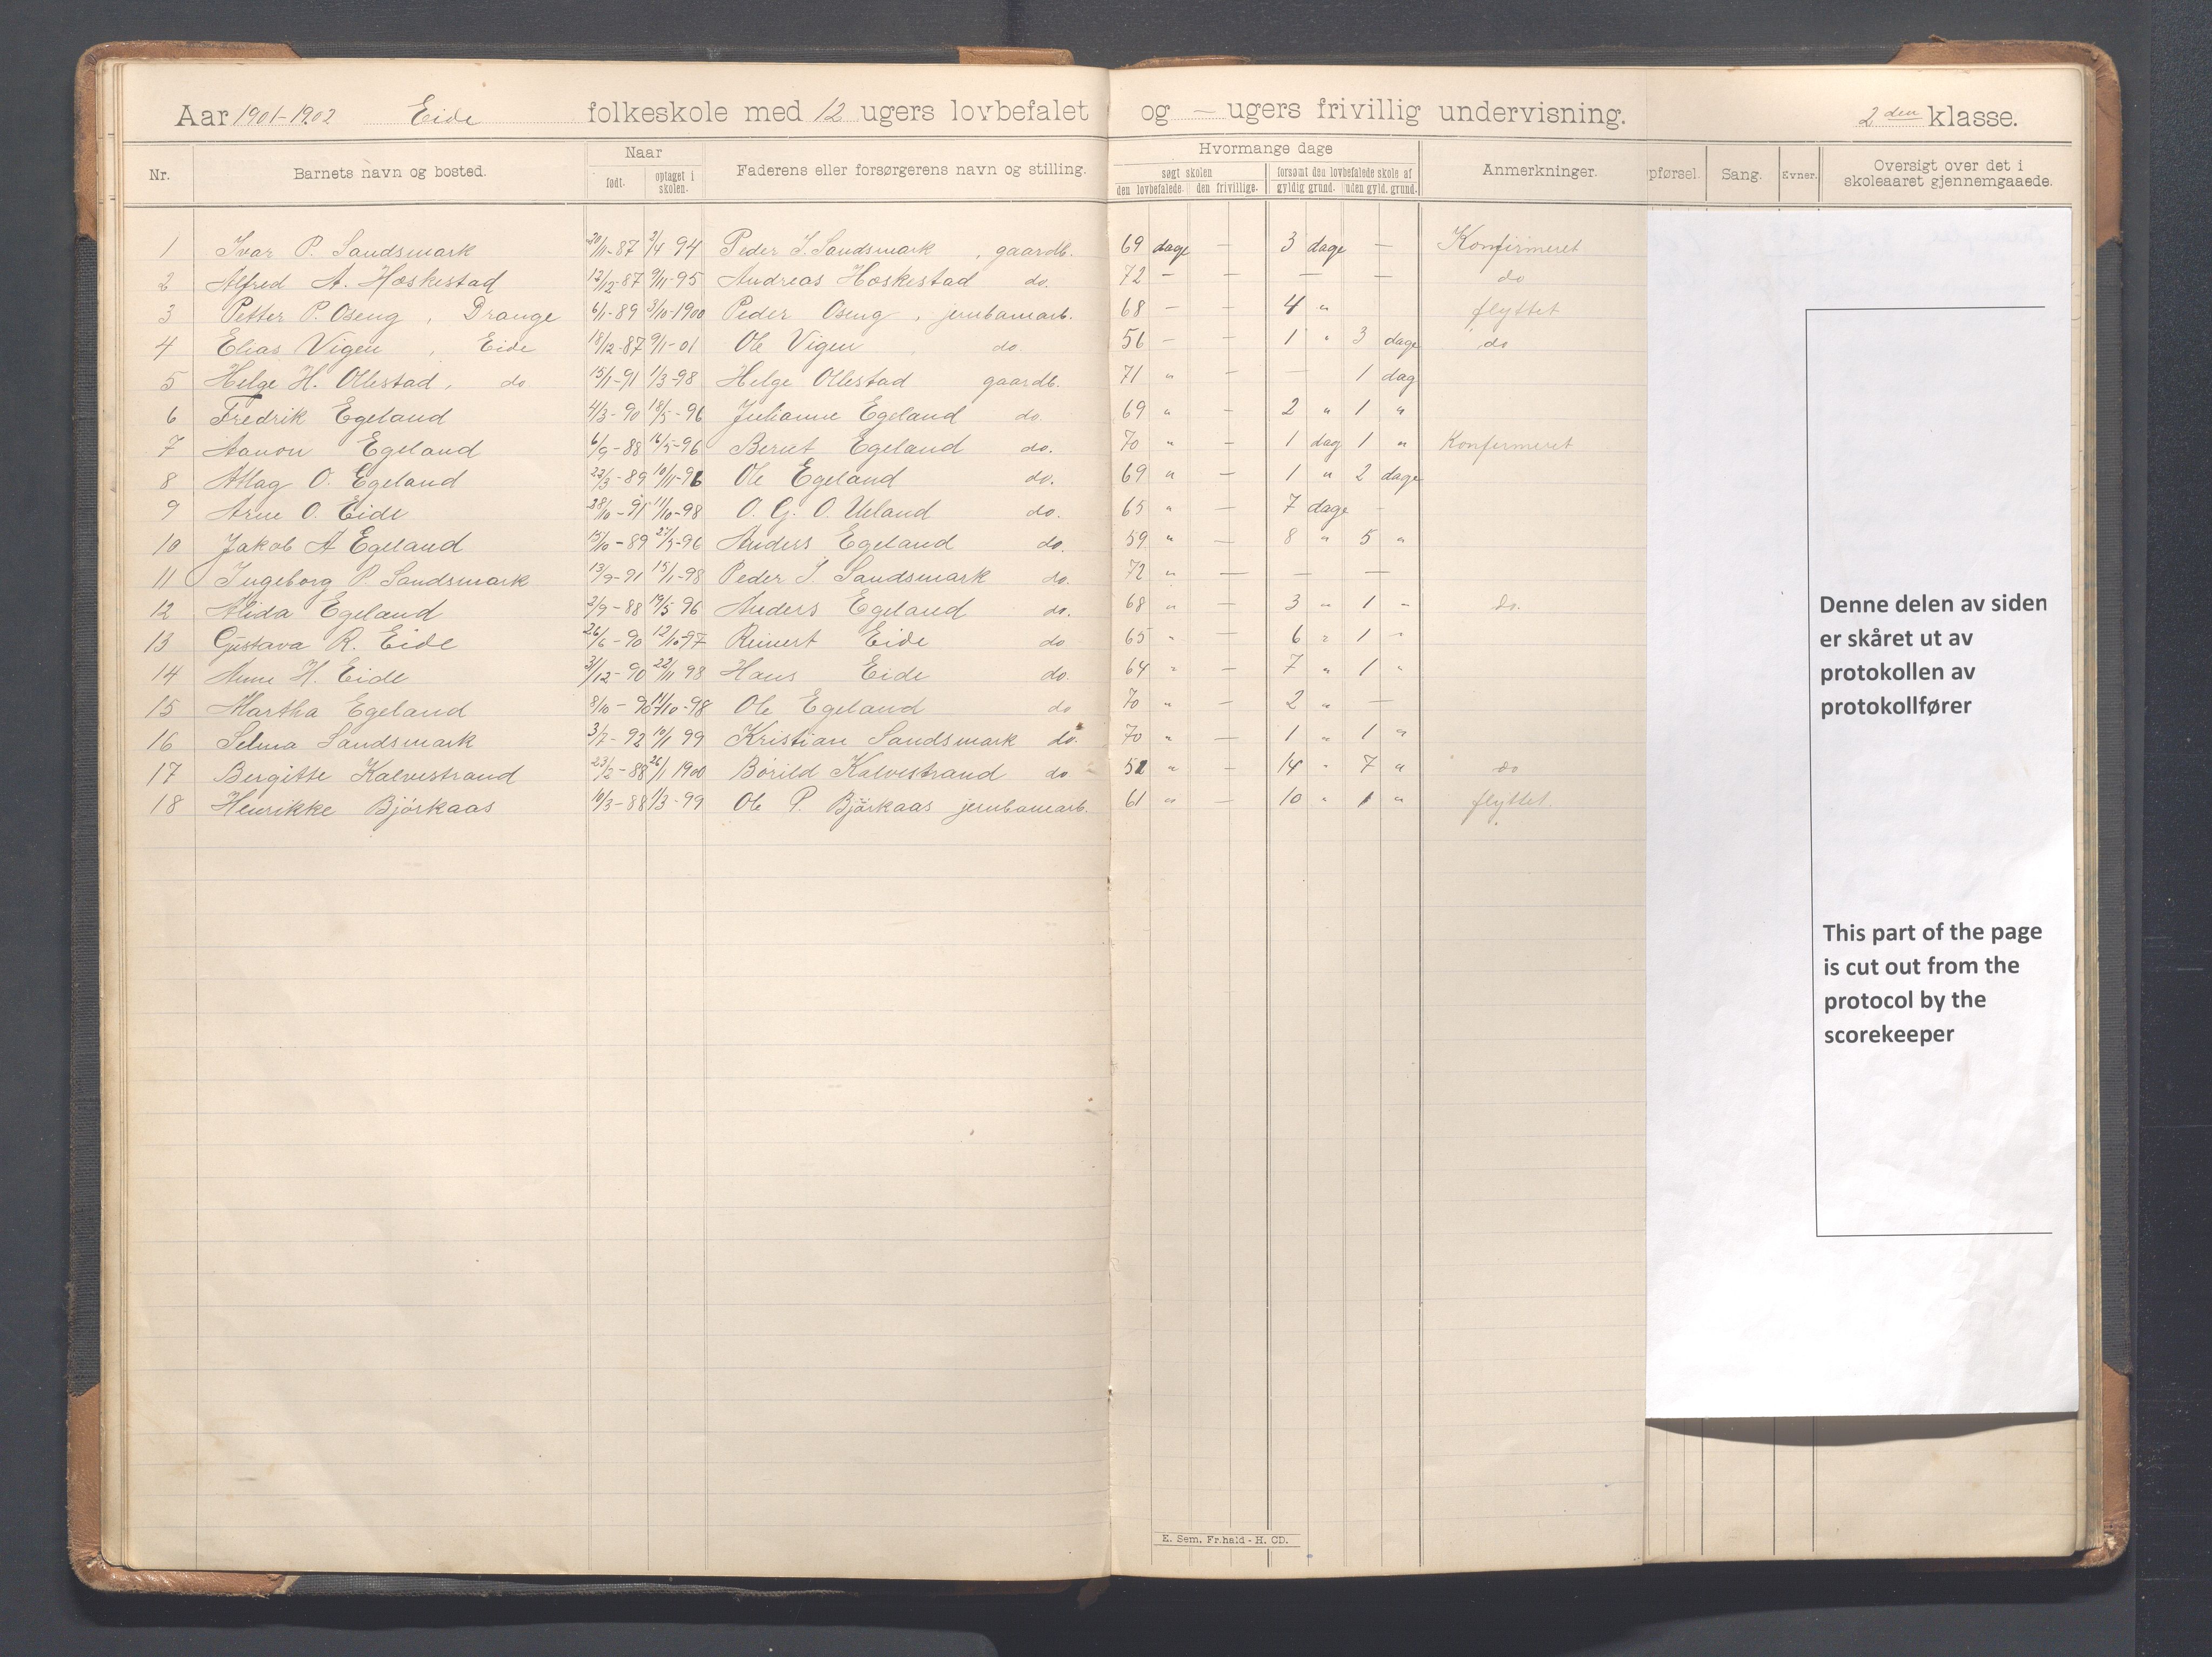 Aar 1901-1902 Eide folkeskole med 12 ugers lovbefalet og — ugers frivillig undervisning. 2den klasse.
Nr. Barnets navn og bosted. Naar født. optaget i skolen. Faderens eller forsørgerens navn og stilling. Hvormange dage søgt skolen den lovbefalede. den frivillige. forsømt den lovbefalede skole af gyldig grund. uden gyld. grund. Anmerkninger. pførsel. Sang. Evner. Oversigt over det i skoleaaret gjennemgaaede.
1 Ivar P. Sandsmark 20/11-87 2/4 94 Peder I. Sandsmark, gaardb. 69 dage — 3 dage — Konfirmeret
2 Alfred A. Hæskestad 12/12-87 9/11-95 Andreas Hæskestad do. 72 — — — — do
3 Petter P. Oseng, Drange 6/1-89 3/10-1900 Peder Oseng, jernbanarb. 68 — — 4 " flyttet
4 Elias Vigen, Eide 18/12-87 9/1-01 Ole Vigen, do. 56 — — 1 " 3 dage do
5 Helge H. Ollestad, do 15/1-91 1/3-98 Helge Ollestad gaardb. 71 " — — 1 dag
6 Fredrik Egeland 4/3-90 18/5-96 Julianne Egeland do. 69 " — 2 " 1 "
7 Aanon Egeland 6/9-88 16/5-96 Berut Egeland do. 70 " — 1 dag 1 " Konfirmeret
8 Atlag O. Egeland 22/3-89 10/11-96 Ole Egeland do. 69 " — 1 " 2 dage
9 Arne O. Eide 28/10-91 11/10-98 O. G. O. Ueland do. 65 " — 7 dage -
10 Jakob A Egeland 15/10-89 27/5-96 Anders Egeland do. 59 " — 8 " 5 "
11 Ingeborg P. Sandsmark 13/9-91 15/1-98 Peder I. Sandsmark do. 72 " — — —
12 Alida Egeland 2/9-88 19/5 96 Anders Egeland do. 68 " — 3 " 1 - do.
13 Gustava R. Eide 26/6-90 12/10-97 Reinert Eide do 65 " — 6 " 1 "
14 Anne H. Eide 31/12-90 22/11 98 Hans Eide do. 64 " — 7 " 1 "
15 Martha Egeland 8/10-90 11/10-98 Ole Egeland do 70 " — 2 " —
16 Selma Sandsmark 3/7-92 10/1 99 Kristian Sandsmark do. 70 " — 1 " 1 "
17 Bergitte Kalvestrand 23/2-88 26/1 1900 Børild Kalvestrand do 51 " — 14 " 7 " do
18 Henrikke Bjørkaas 10/3-88 1/3-99 Ole P. Bjørkaas jernbanarb. 61 " — 10 " 1 " flyttet.
Denne delen av siden
er skåret ut av
protokollen av
protokollfører
This part of the page
is cut out from the
protocol by the
scorekeeper
E. Sem, Fr.hald - H. CD.